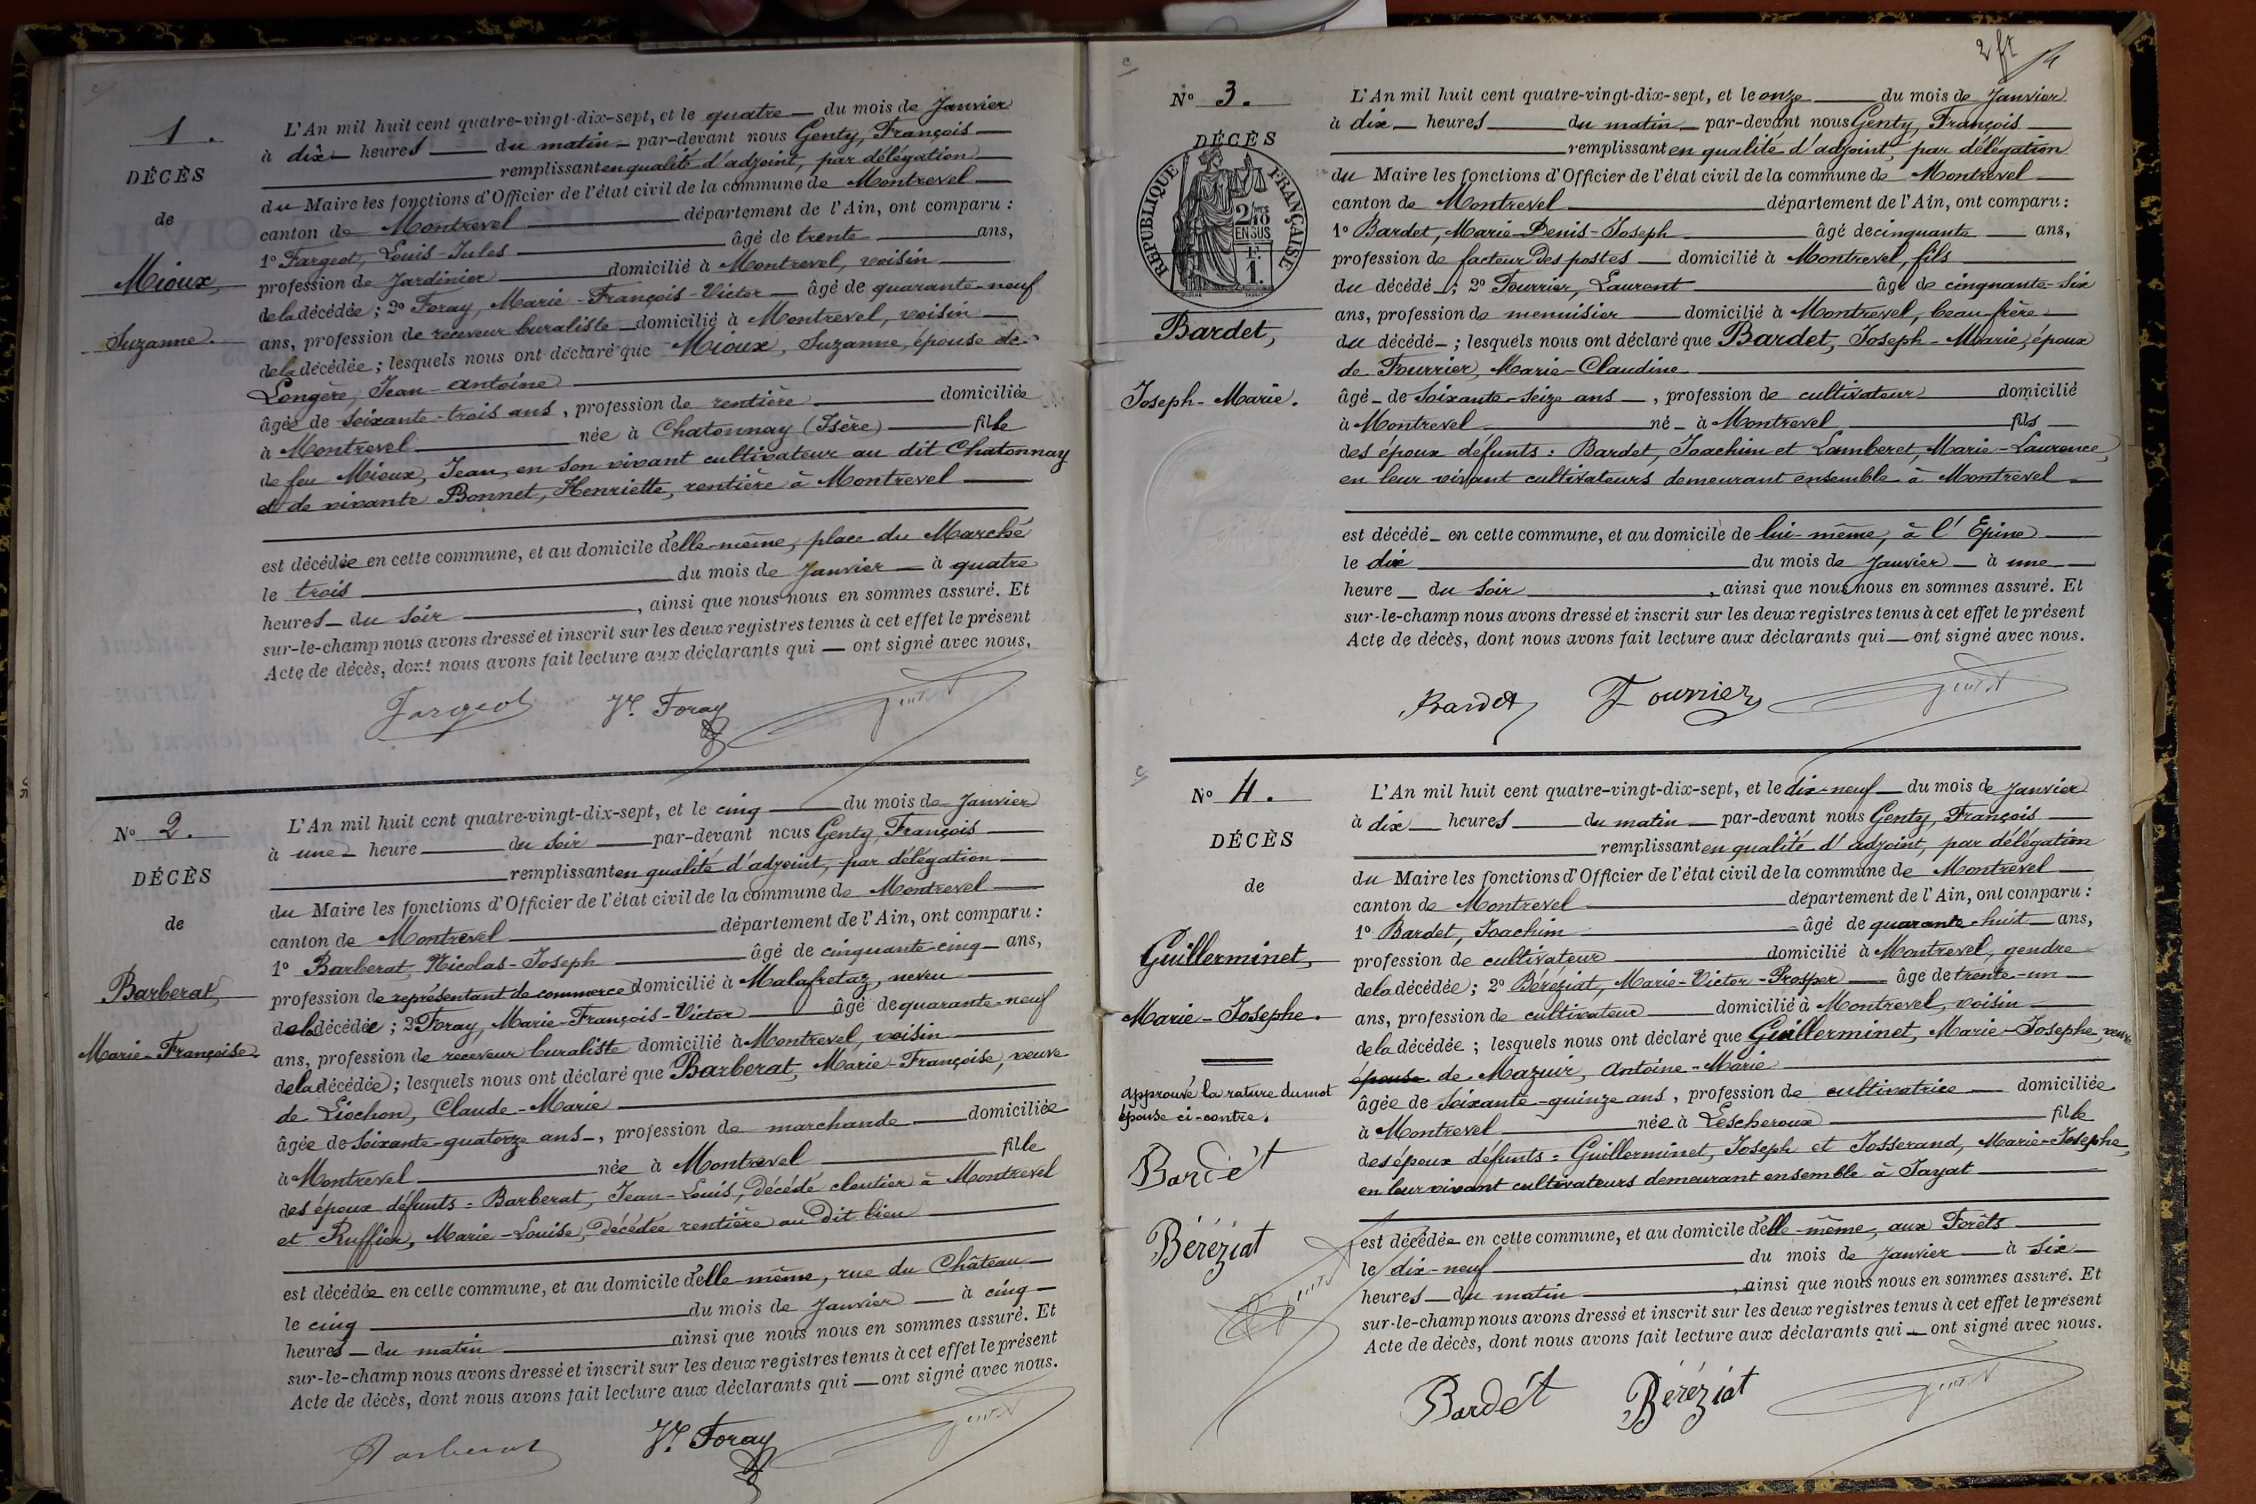 1.
DÉCÈS
de
Mioux,
Suzanne.
L'An mil huit cent quatre-vingt-dix-sept, et le quatre du mois de Janvier
à dix heures du matin par-devant nous Genty, François
remplissant en qualité d'adjoint, par délégation
du Maire les fonctions d'Officier de l'état civil de la commune de Montrevel
canton de Montrevel département de l'Ain, ont comparu :
1º Fargeot, Louis-Jules âgé de trente ans,
profession de Jardinier domicilié à Montrevel, voisin
de la décédée ; 2º Foray, Marie-François-Victor âgé de quarante-neuf
ans, profession de receveur buraliste domicilié à Montrevel, voisin
de la décédée ; lesquels nous ont déclaré que Mioux, Suzanne, épouse de
Longère, Jean-Antoine
âgée de soixante-trois ans, profession de rentière domiciliée
à Montrevel née à Chatonnay (Isère) fille
de feu Mioux, Jean, en son vivant cultivateur au dit Chatonnay
et de vivante Bonnet, Henriette, rentière à Montrevel
est décédée en cette commune, et au domicile d'elle-même, place du Marché
le trois du mois de Janvier à quatre
heures du soir, ainsi que nous nous en sommes assuré. Et
sur-le-champ nous avons dressé et inscrit sur les deux registres tenus à cet effet le présent
Acte de décès, dont nous avons fait lecture aux déclarants qui ont signé avec nous.
Fargeot Vr. Foray Genty
Nº 2.
DÉCÈS
de
Barberat,
Marie-Françoise.
L'An mil huit cent quatre-vingt-dix-sept, et le cinq du mois de Janvier
à une heure du soir par-devant nous Genty, François
remplissant en qualité d'adjoint, par délégation
du Maire les fonctions d'Officier de l'état civil de la commune de Montrevel
canton de Montrevel département de l'Ain, ont comparu :
1º Barberat, Nicolas-Joseph âgé de cinquante-cinq ans,
profession de représentant de commerce domicilié à Malafretaz, neveu
de la décédée ; 2º Foray, Marie-François-Victor âgé de quarante-neuf
ans, profession de receveur buraliste domicilié à Montrevel, voisin
de la décédée ; lesquels nous ont déclaré que Barberat, Marie-Françoise, veuve
de Liochon, Claude-Marie
âgée de soixante-quatorze ans, profession de marchande domiciliée
à Montrevel née à Montrevel fille
des époux défunts : Barberat, Jean-Louis, décédé cloutier à Montrevel
et Ruffier, Marie-Louise, décédée rentière au dit lieu
est décédée en cette commune, et au domicile d'elle-même, rue du Château
le cinq du mois de Janvier à cinq
heures du matin ainsi que nous nous en sommes assuré. Et
sur-le-champ nous avons dressé et inscrit sur les deux registres tenus à cet effet le présent
Acte de décès, dont nous avons fait lecture aux déclarants qui ont signé avec nous.
Barberat Vr. Foray Genty
2 ft
Nº 3.
DÉCÈS
RÉPUBLIQUE FRANÇAISE
2/10 EN SUS
1 F.
Bardet,
Joseph-Marie.
L'An mil huit cent quatre-vingt-dix-sept, et le onze du mois de Janvier
à dix heures du matin par-devant nous Genty, François
remplissant en qualité d'adjoint, par délégation
du Maire les fonctions d'Officier de l'état civil de la commune de Montrevel
canton de Montrevel département de l'Ain, ont comparu :
1º Bardet, Marie-Denis-Joseph âgé de cinquante ans,
profession de facteur des postes domicilié à Montrevel, fils
du décédé ; 2º Fourrier, Laurent âgé de cinquante-six
ans, profession de menuisier domicilié à Montrevel, beau-frère
du décédé ; lesquels nous ont déclaré que Bardet, Joseph-Marie, époux
de Fourrier, Marie-Claudine
âgé de soixante-seize ans, profession de cultivateur domicilié
à Montrevel né à Montrevel fils
des époux défunts : Bardet, Joachim et Lamberet, Marie-Laurence,
en leur vivant cultivateurs demeurant ensemble à Montrevel
est décédé en cette commune, et au domicile de lui-même, à l'Epine
le dix du mois de Janvier à une
heure du soir, ainsi que nous nous en sommes assuré. Et
sur-le-champ nous avons dressé et inscrit sur les deux registres tenus à cet effet le présent
Acte de décès, dont nous avons fait lecture aux déclarants qui ont signé avec nous.
Bardet Fourrier Genty
Nº 4.
DÉCÈS
de
Guillerminet,
Marie-Josephe.
approuvé la rature du mot
épouse ci-contre.
Bardet
Béréziat
Genty
L'An mil huit cent quatre-vingt-dix-sept, et le dix-neuf du mois de Janvier
à dix heures du matin par-devant nous Genty, François
remplissant en qualité d'adjoint, par délégation
du Maire les fonctions d'Officier de l'état civil de la commune de Montrevel
canton de Montrevel département de l'Ain, ont comparu :
1º Bardet, Joachim âgé de quarante-huit ans,
profession de cultivateur domicilié à Montrevel, gendre
de la décédée ; 2º Béréziat, Marie-Victor-Prosper âgé de trente-un
ans, profession de cultivateur domicilié à Montrevel, voisin
de la décédée ; lesquels nous ont déclaré que Guillerminet, Marie-Josephe, veuve
épouse de Mazuir, Antoine-Marie
âgée de soixante-quinze ans, profession de cultivatrice domiciliée
à Montrevel née à Lescheroux fille
des époux défunts : Guillerminet, Joseph et Josserand, Marie-Josephe,
en leur vivant cultivateurs demeurant ensemble à Jayat
est décédée en cette commune, et au domicile d'elle-même, aux Forêts
le dix-neuf du mois de Janvier à six
heures du matin, ainsi que nous nous en sommes assuré. Et
sur-le-champ nous avons dressé et inscrit sur les deux registres tenus à cet effet le présent
Acte de décès, dont nous avons fait lecture aux déclarants qui ont signé avec nous.
Bardet Béréziat Genty